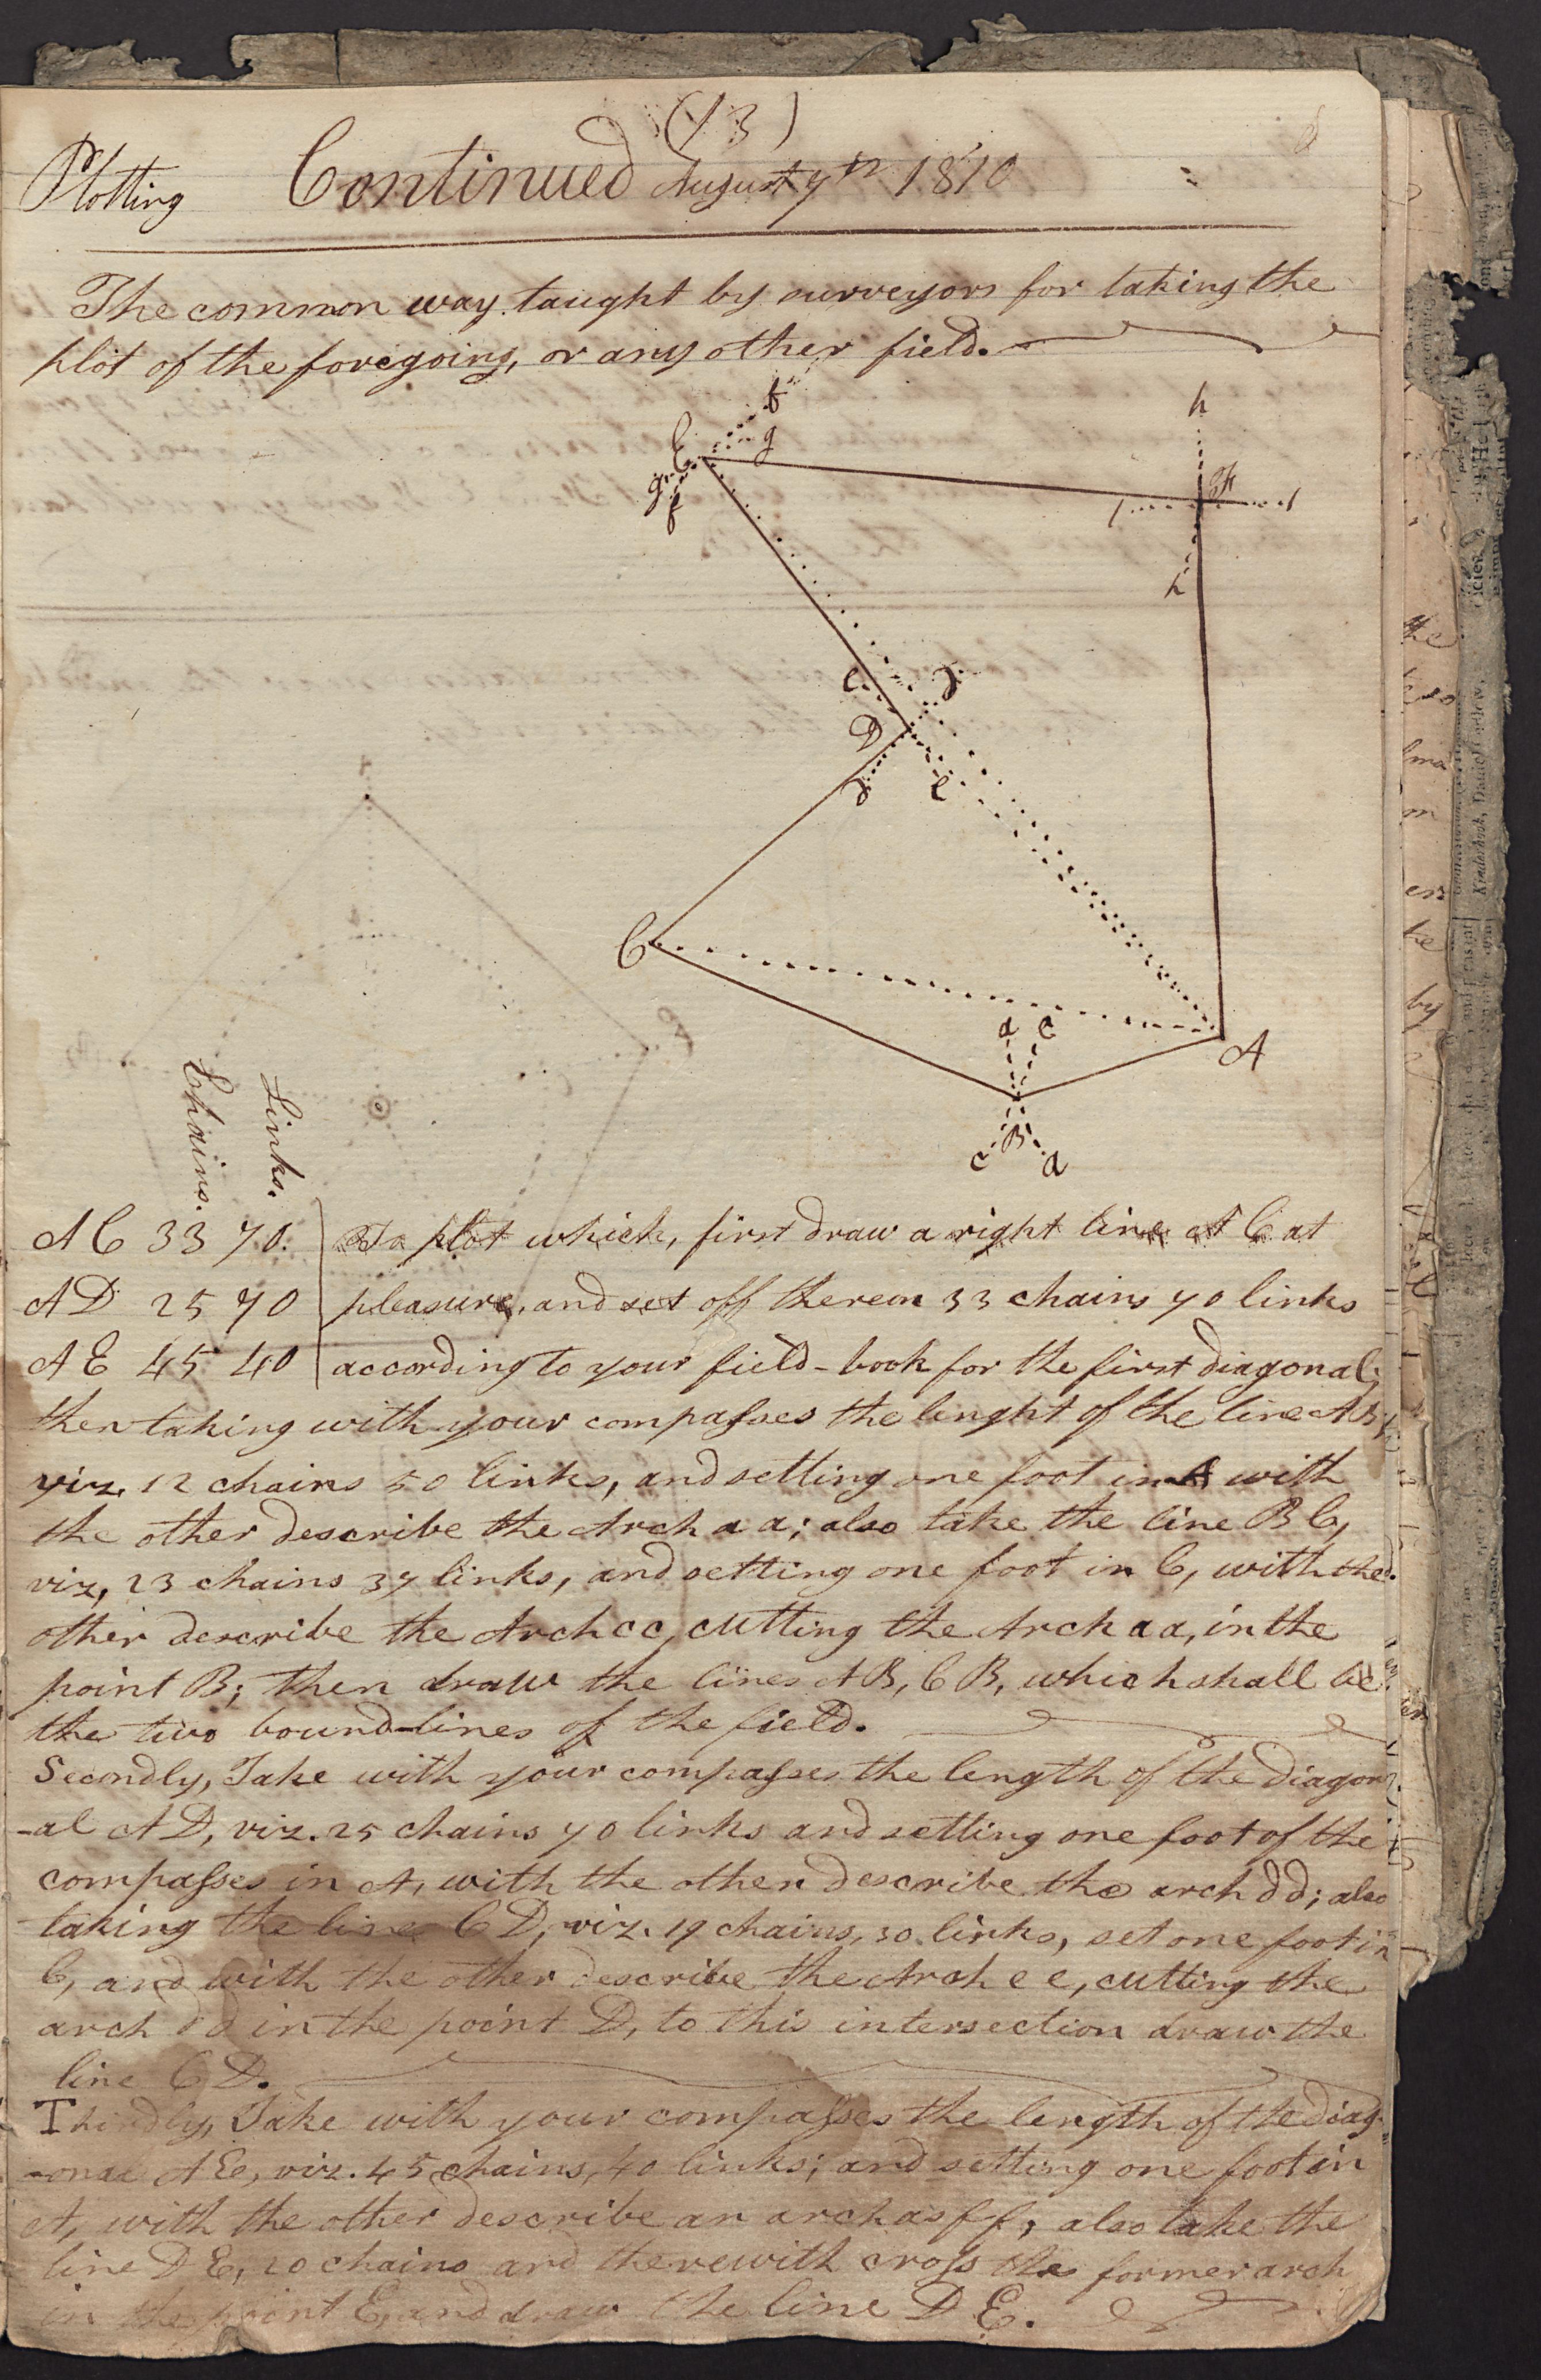 (13)
Plotting Continued August 7th 1810
The common way taught by surveyors for taking the
plot of the foregoing, or any other field.
f
g
E
g
f
h
F
l
l
h
e
d
D
d
e
C
a c
A
B
c
a
Chains. Links.
A C 33 70.
A D 25 70
A E 45 40
To plot which, first draw a right line A C at
pleasure, and set off thereon 33 chains 70 links
according to your field-book for the first diagonal;
then taking with your compasses the lenght of the line AB,
viz. 12 chains 50 links, and setting one foot in A with
the other describe the Arch a a; also take the line B C,
viz, 23 chains 37 links, and setting one foot in C, with the
other describe the Arch c c, cutting the Arch a a, in the
point B; then draw the lines A B, C B, which shall be
the two bound-lines of the field.
Secondly, Take with your compasses the length of the diagon
-al A D, viz. 25 chains 70 links and setting one foot of the
compasses in A, with the other describe the arch d d; also
taking the line C D, viz. 19 chains, 30 links, set one foot in
C, and with the other describe the Arch e e, cutting the
arch d d in the point D, to this intersection draw the
line C D.
Thirdly, Take with your compasses the length of the diag-
-onal A E, viz. 45 chains, 40 links; and setting one foot in
A, with the other describe an arch as f f, also take the
line D E, 20 chains and therewith cross the former arch
in the point E, and draw the line D E.